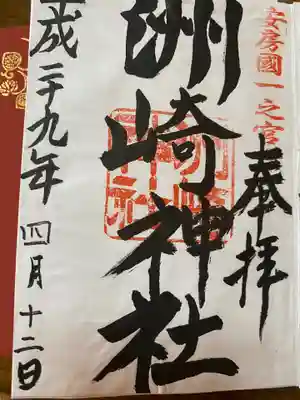 安房國一之宮
奉拝
洲崎神社
平成二十九年四月十二日